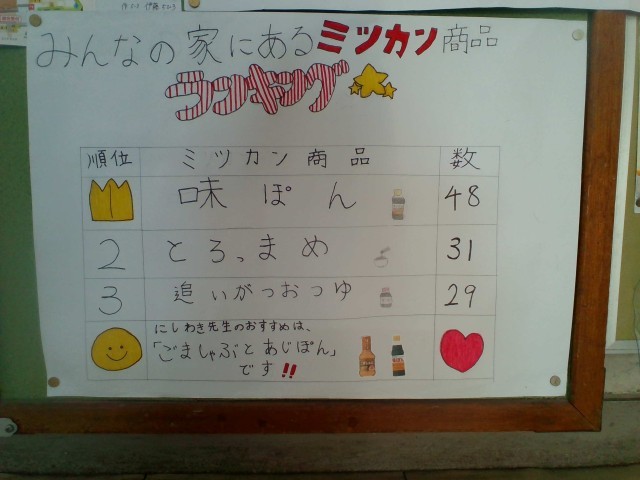 みんなの家にあるミツカン商品
ランキング
順位 ミツカン商品 数
1 味ぽん 48
2 とろっまめ 31
3 追いがつおつゆ 29
にしわき先生のおすすめは、
「ごましゃぶとあじぽん」
です!!